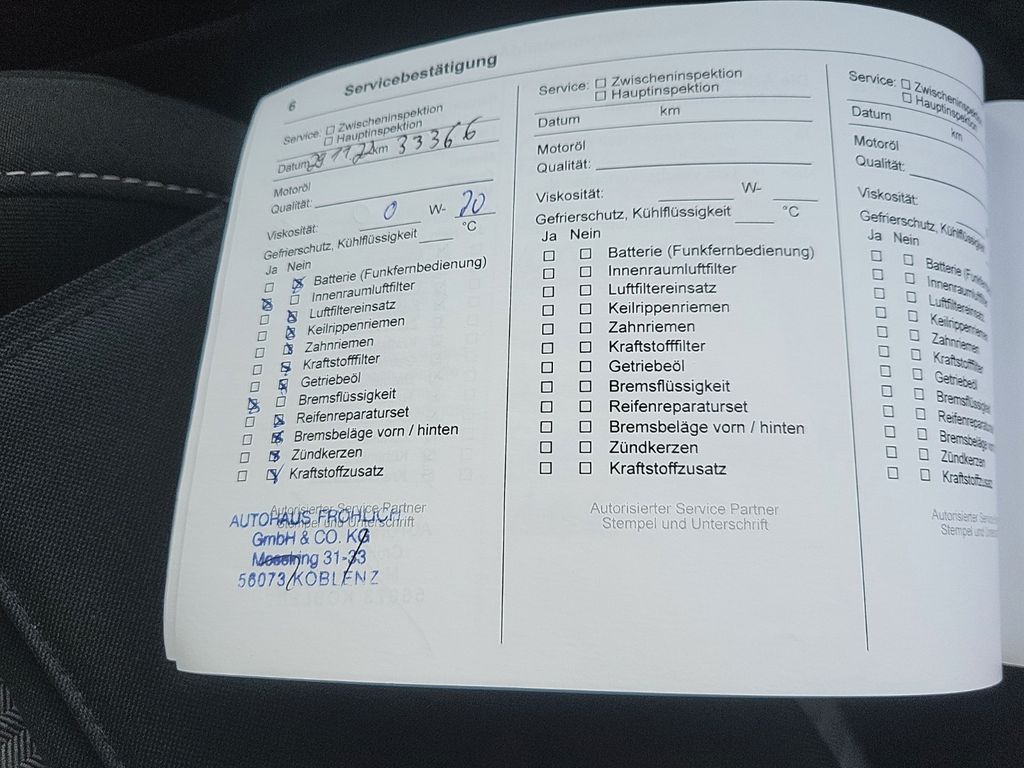 6 Servicebestätigung
Service: ☐ Zwischeninspektion
☐ Hauptinspektion
Datum 29 11 22 km 33366
Motoröl
Qualität:
Viskosität: 0 W- 20
Gefrierschutz, Kühlflüssigkeit °C
Ja Nein
☐ ☒ Batterie (Funkfernbedienung)
☒ ☐ Innenraumluftfilter
☐ ☒ Luftfiltereinsatz
☐ ☒ Keilrippenriemen
☐ ☒ Zahnriemen
☐ ☒ Kraftstofffilter
☐ ☒ Getriebeöl
☒ ☐ Bremsflüssigkeit
☐ ☒ Reifenreparaturset
☐ ☒ Bremsbeläge vorn / hinten
☐ ☒ Zündkerzen
☐ ☒ Kraftstoffzusatz
Autorisierter Service Partner
Stempel und Unterschrift
AUTOHAUS FRÖHLICH
GmbH & CO. KG
Moselring 31-33
56073 KOBLENZ
Service: ☐ Zwischeninspektion
☐ Hauptinspektion
Datum km
Motoröl
Qualität:
Viskosität: W-
Gefrierschutz, Kühlflüssigkeit °C
Ja Nein
☐ ☐ Batterie (Funkfernbedienung)
☐ ☐ Innenraumluftfilter
☐ ☐ Luftfiltereinsatz
☐ ☐ Keilrippenriemen
☐ ☐ Zahnriemen
☐ ☐ Kraftstofffilter
☐ ☐ Getriebeöl
☐ ☐ Bremsflüssigkeit
☐ ☐ Reifenreparaturset
☐ ☐ Bremsbeläge vorn / hinten
☐ ☐ Zündkerzen
☐ ☐ Kraftstoffzusatz
Autorisierter Service Partner
Stempel und Unterschrift
Service: ☐ Zwischeninspektion
☐ Hauptinspektion
Datum km
Motoröl
Qualität:
Viskosität:
Gefrierschutz, Kühlflüssig
Ja Nein
☐ ☐ Batterie (Funkf
☐ ☐ Innenraumluftfi
☐ ☐ Luftfiltereinsatz
☐ ☐ Keilrippenriemen
☐ ☐ Zahnriemen
☐ ☐ Kraftstofffilter
☐ ☐ Getriebeöl
☐ ☐ Bremsflüssig
☐ ☐ Reifenreparatu
☐ ☐ Bremsbeläge vor
☐ ☐ Zündkerzen
☐ ☐ Kraftstoffzusat
Autorisierter Service
Stempel und Unters